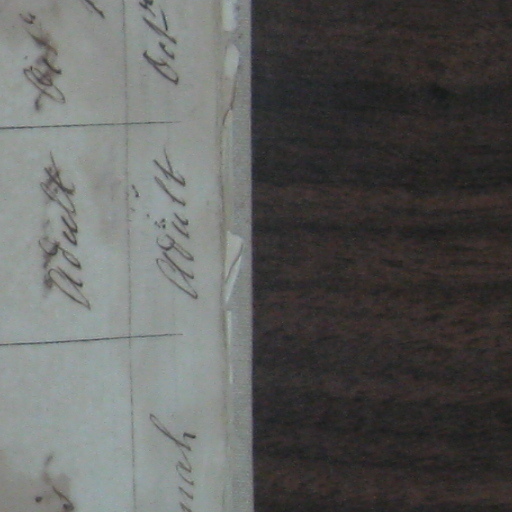 is Adult Octr
nah Adult Octr